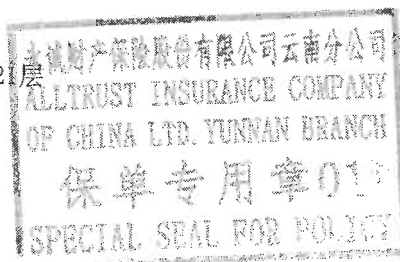 永诚财产保险股份有限公司云南分公司
21层
ALLTRUST INSURANCE COMPANY
OF CHINA LTD. YUNNAN BRANCH
保单专用章01
SPECIAL SEAL FOR POLICY